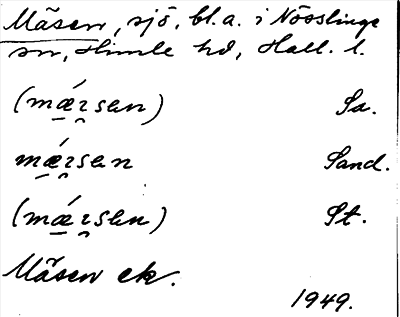 Mäsen, sjö, bl. a. i Nösslinge
sn, Himle hd, Hall. l.
(mǽ̠ɿ̯sɐn) Sa.
mǽ̠ɿ̯sɐn Sand.
(mǽ̠ɿ̯sɐn) St.
Mäsen ek.
1949.